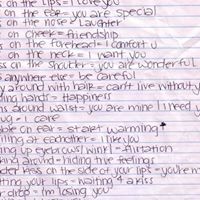 on the lips = I love you
on the ear = you are special
on the nose = Laughter
on cheek = friendship
on the forehead = I comfort u
on the neck = I want you
ss on the shoulder = you are wonderful
s anywhere else = be careful
y around with hair = can't live without y
ding hands = Happiness
s around waist = you are mine I need
ug = I care
ble on ear = start warming
iling at eachother = I like you
ng up eyebrows/wink = flirtation
king around = hiding true feelings
kiss on the side of your lips = you're m
tting your lips = waiting 4 a kiss
drop = im losing you